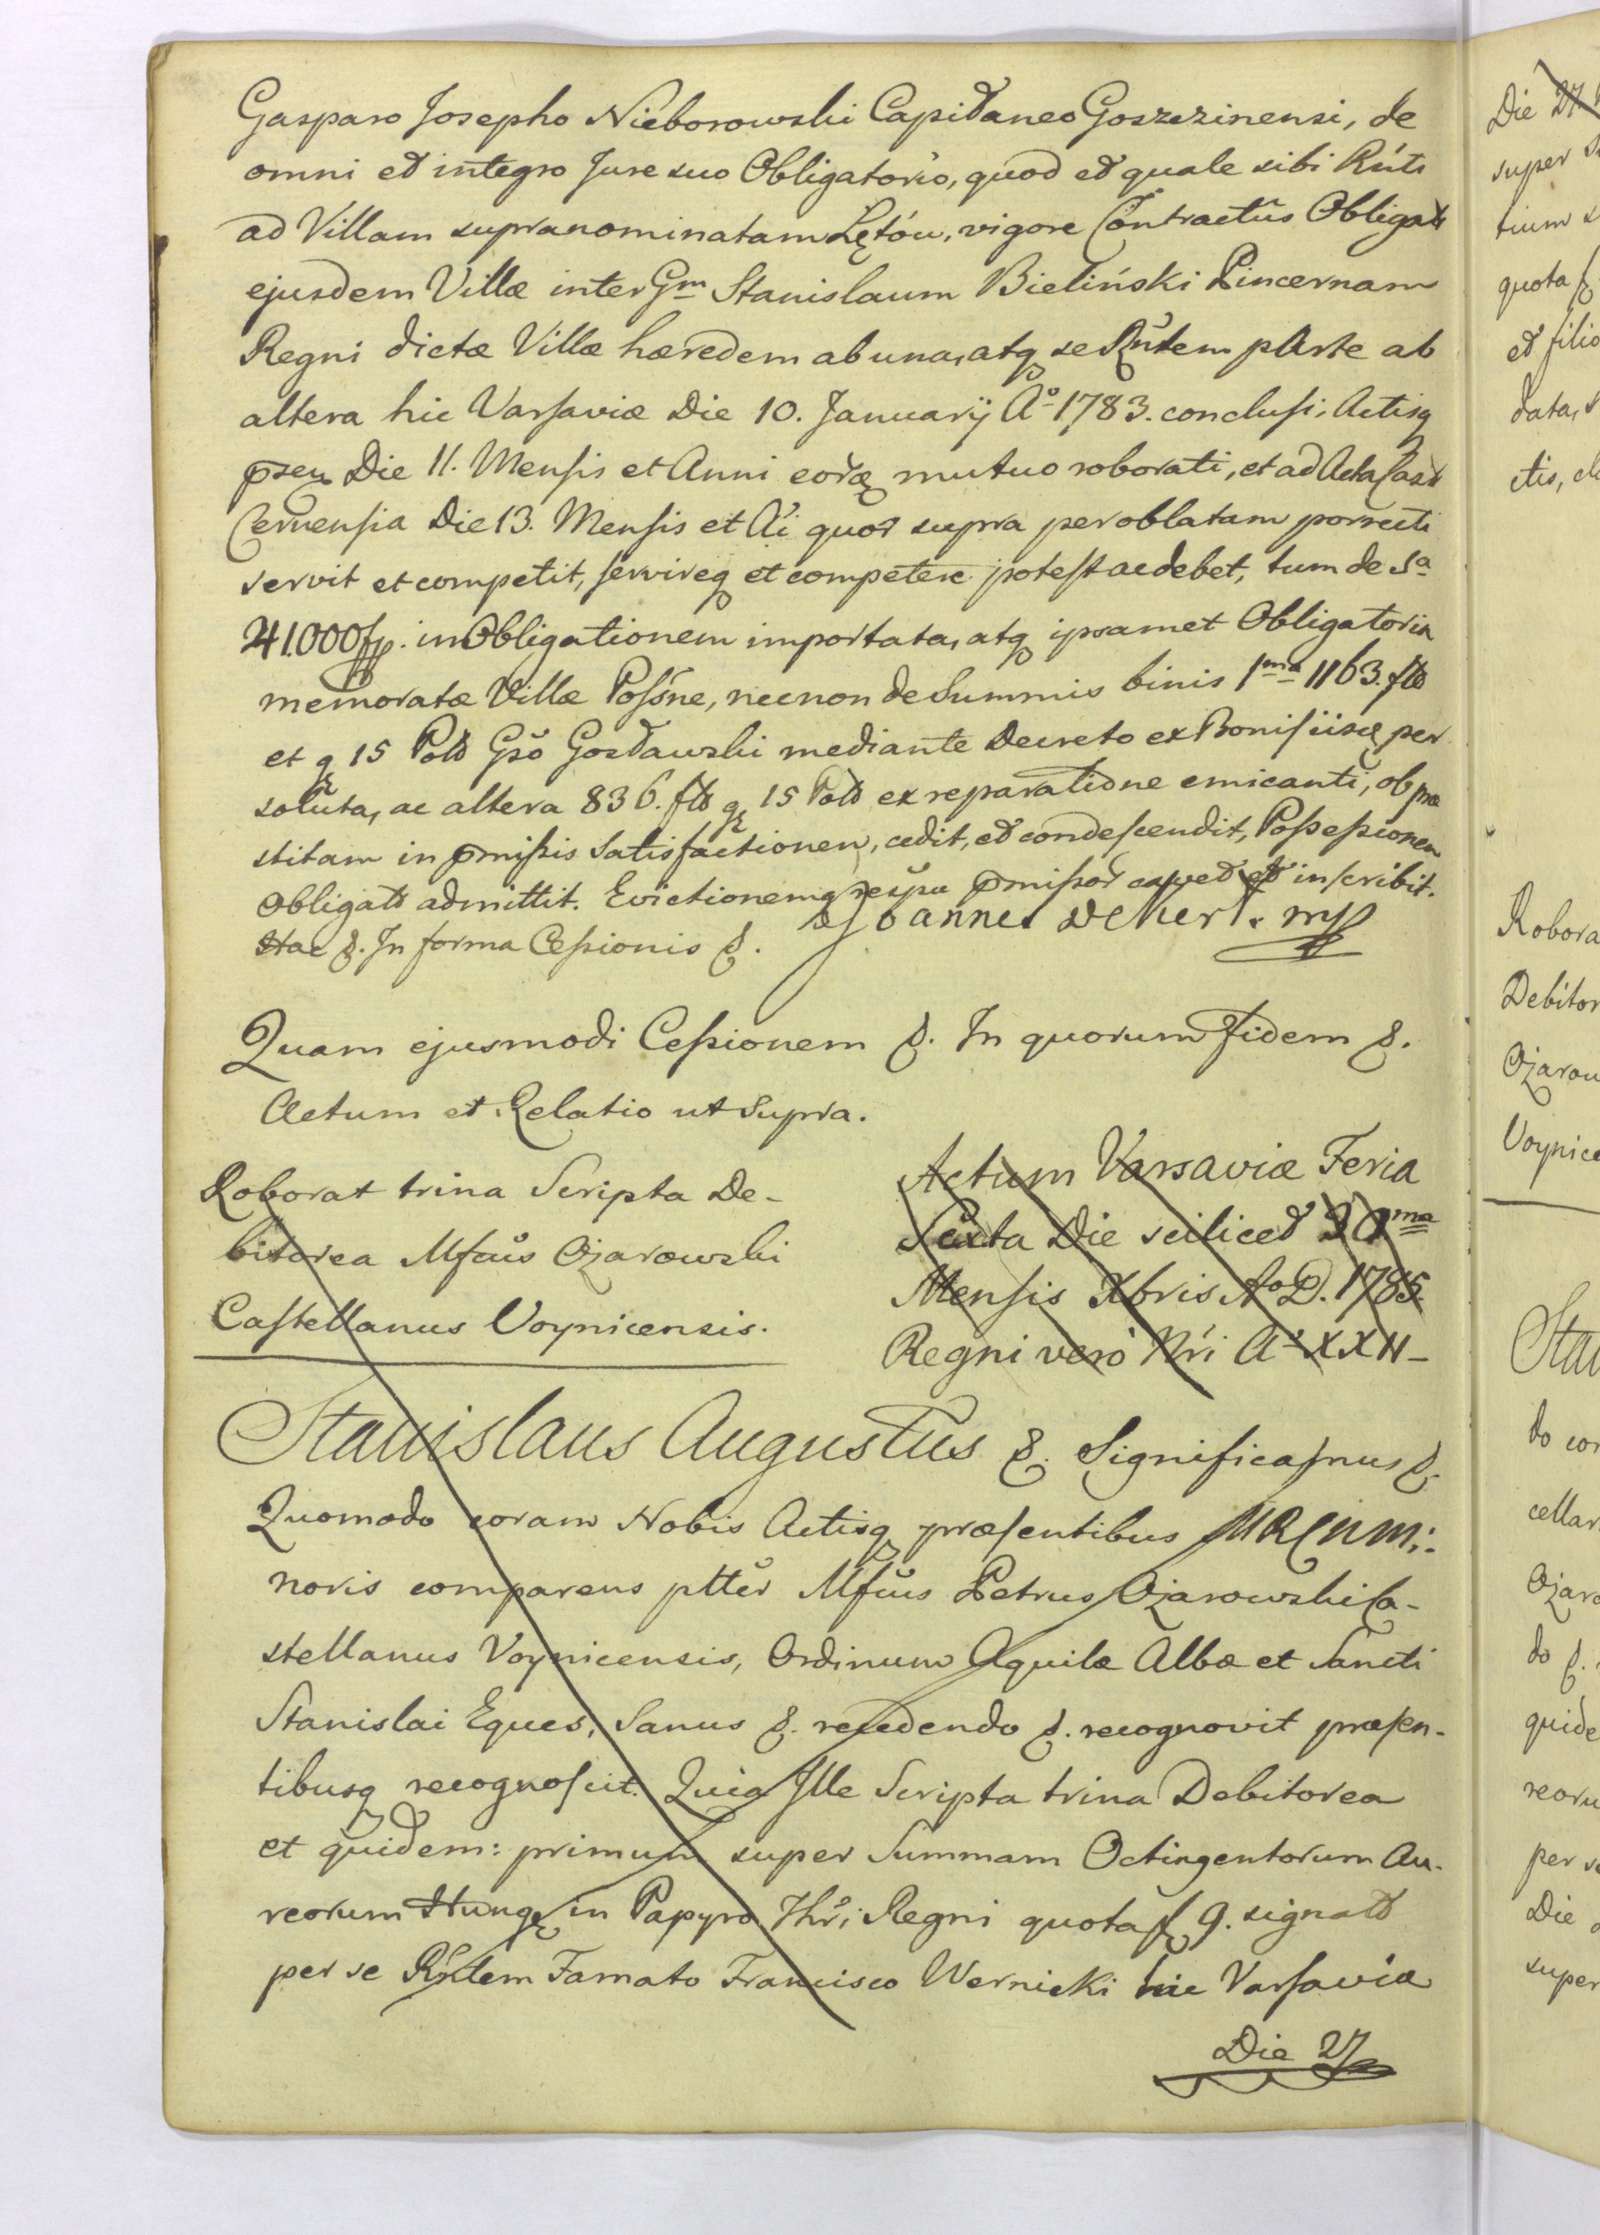 Gasparo Josepho Nieborowski Capitaneo Goszczinensi, de
omni et integro Jure suo Obligatorio, quod et quale sibi Rnti
ad Villam supranominatam Lętów, vigore Contractûs Obligats
ejusdem Villæ inter Gm Stanislaum Bieliński Pincernam
Regni dictæ Villæ hæredem ab una, atq se Rntem parte ab
altera hic Varsaviæ Die 10. Januarij Ao 1783. conclusi, Actisq
pseq Die 11. Mensis et Anni eorq mutuo roborati, et ad Acta Cast
Cernensia Die 13. Mensis et Ai quor supra per oblatam porrecti
servit et competit, servireq et competere potest ac debet, tum de Sa
41.000 fp. in Obligationem importata, atq ipsamet Obligatoria
memoratæ Villæ Possne, necnon de Summis binis 1ma 1163. flo
et g 15 Pol Gso Gostawski mediante Decreto ex Bonificisq per
soluta, ac altera 836. flo g 15 Pol ex reparatione emicanti, ob præ
stitam in pmissis Satisfactionem, cedit, et condescendit, Possessionem
Obligats admittit. Evictionemq respu pmissor cavet et inscribit.
Hac &. In forma Cessionis &. Joannes Dekert. mp
Quam ejusmodi Cessionem &. In quorum Fidem &.
Actum et Relatio ut Supra.
Roborat trina Scripta De-
bitorea Mfcus Ożarowski
Castellanus Voynicensis.
Actum Varsaviæ Feria
Sexta Die scilicet 30ma
Mensis Xbris Ao D. 1785.
Regni vero Nri Ao XXII-
Stanislaus Augustus &. Significamus &.
Quomodo coram Nobis Actisq præsentibus MRCNM;.
noris comparens ptter Mfcus Petrus Ożarowski Ca-
stellanus Voynicensis, Ordinum Aquilæ Albæ et Sancti
Stanislai Eques, Sanus &. recedendo &. recognovit præsen-
tibusq recognoscit. Quia Ille Scripta trina Debitorea
et quidem: primum super Summam Octingentorum Au-
reorum Hung in Papyro Thri Regni quota f 9. signato
per se Rntem Famato Francisco Wernicki hic Varsaviæ
Die 27
Die 27
super
quota
et filio
data,
Robora
Debitor
Ożarow
Voynice
Stan
do con
cellar
Ożaro
do &.
quide
reoru
per se
Die
super